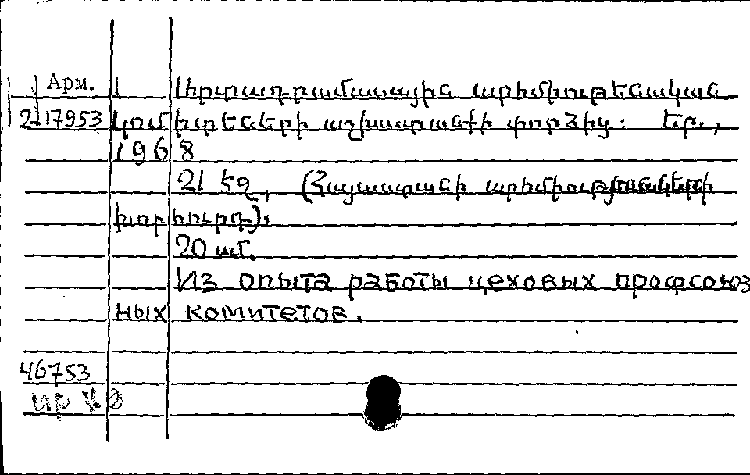 Арм. Արտադրամասային արհմիութենական
2-17953 կոմիտեների աշխատանքի փորձից: Եր.,
1968
21 էջ, (Հայաստանի արհմիությունների
խորհուրդ):
20 սմ.
Из опыта работы цеховых профсоюз
ных комитетов.
46753